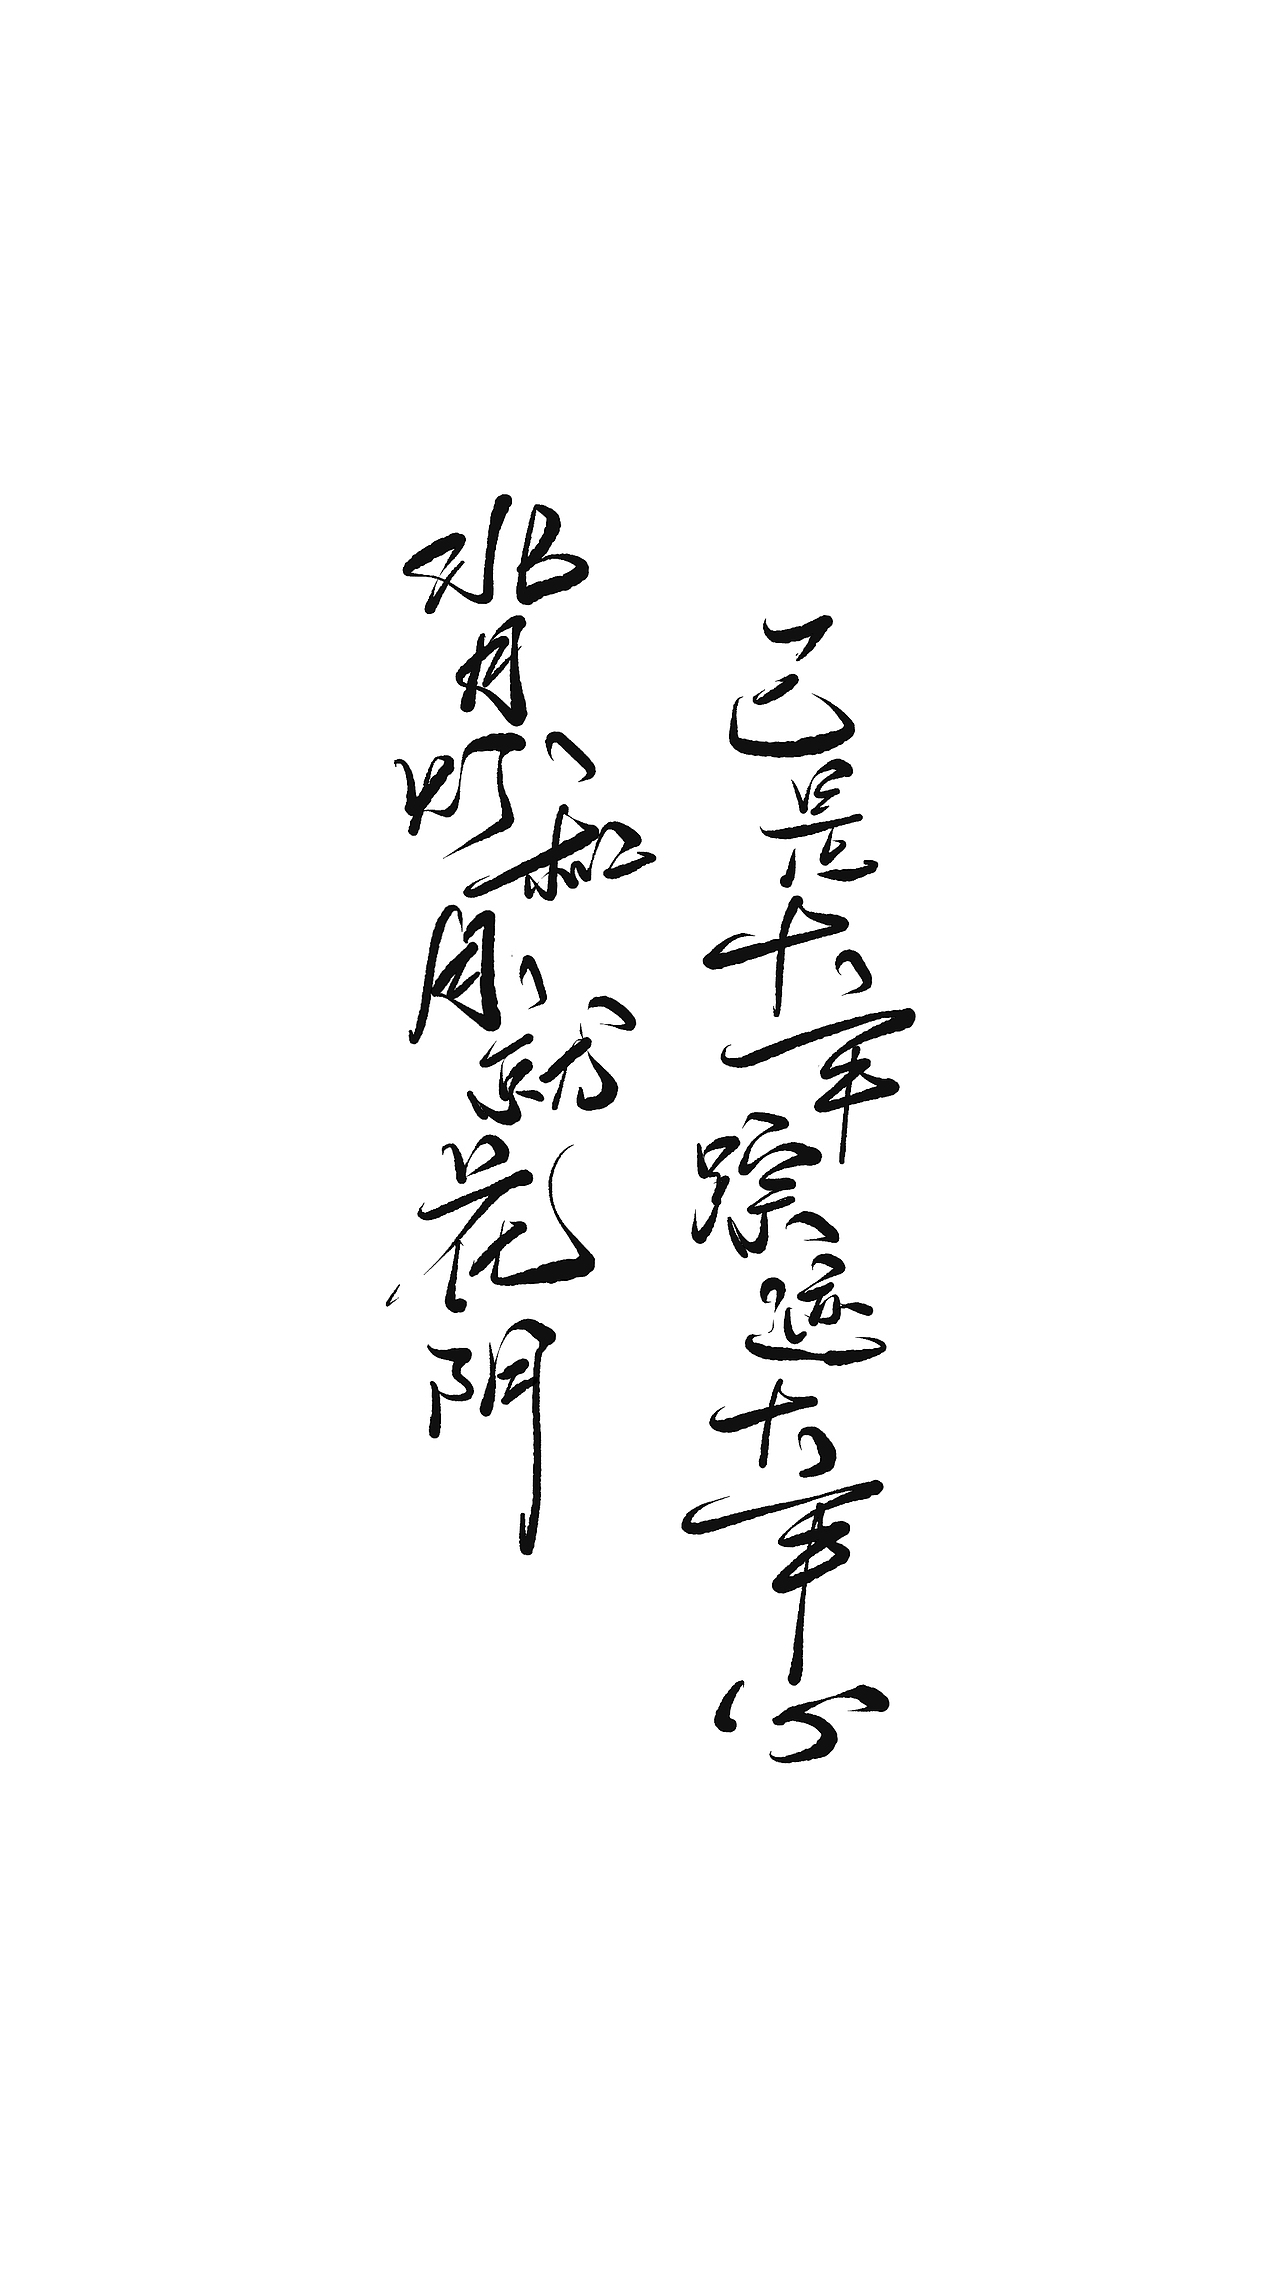 背灯和月就花阴
已是十年踪迹十年心